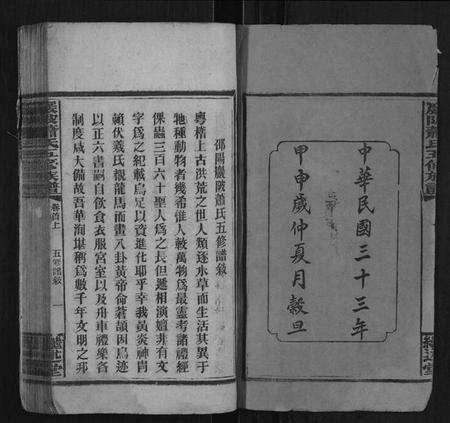 中華民國三十三年
甲申歲仲夏月穀旦
邵陽巖陂蕭氏五修譜敘
粵稽上古洪荒之世人類逐水草而生活其異于
牠種動物者幾希惟人較萬物爲最靈考諸禮經
倮蟲三百六十聖人爲之長但遞相演嬗非有文
字爲之紀載烏足以資進化耶乎幸我黃炎神胄
賴伏羲氏覩龍馬而畫八卦黃帝命蒼頡因鳥迹
以正六書嗣自飲食衣服宮室以及舟車禮樂各
制度咸大備故吾華洵堪稱爲數千年文明之邦
巖陂蕭氏五修族譜
卷首上
五修譜敘
一